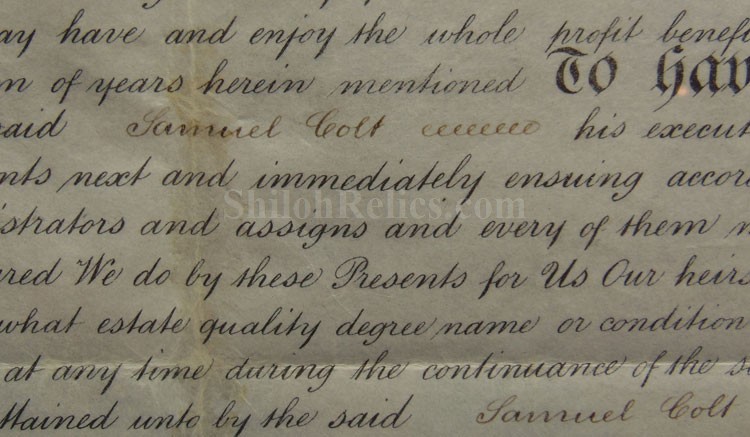 ay have and enjoy the whole profit benefi
m of years herein mentioned To hav
said Samuel Colt his execut
nts next and immediately ensuing accor
istrators and assigns and every of them
ShilohRelics.com
red We do by these Presents for Us Our heirs
what estate quality degree name or condition
at any time during the continuance of the s
ttained unto by the said Samuel Colt